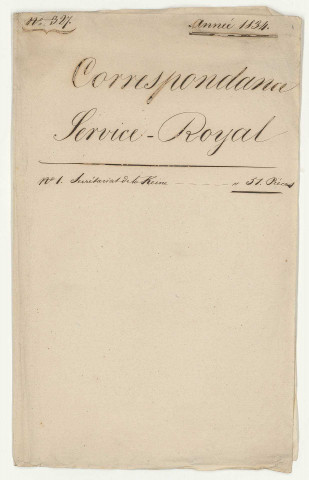 N.º 327.
Année 1834.
Correspondance
Service-Royal
Nº 1. Secrétariat de la Reine " 51. Pièces